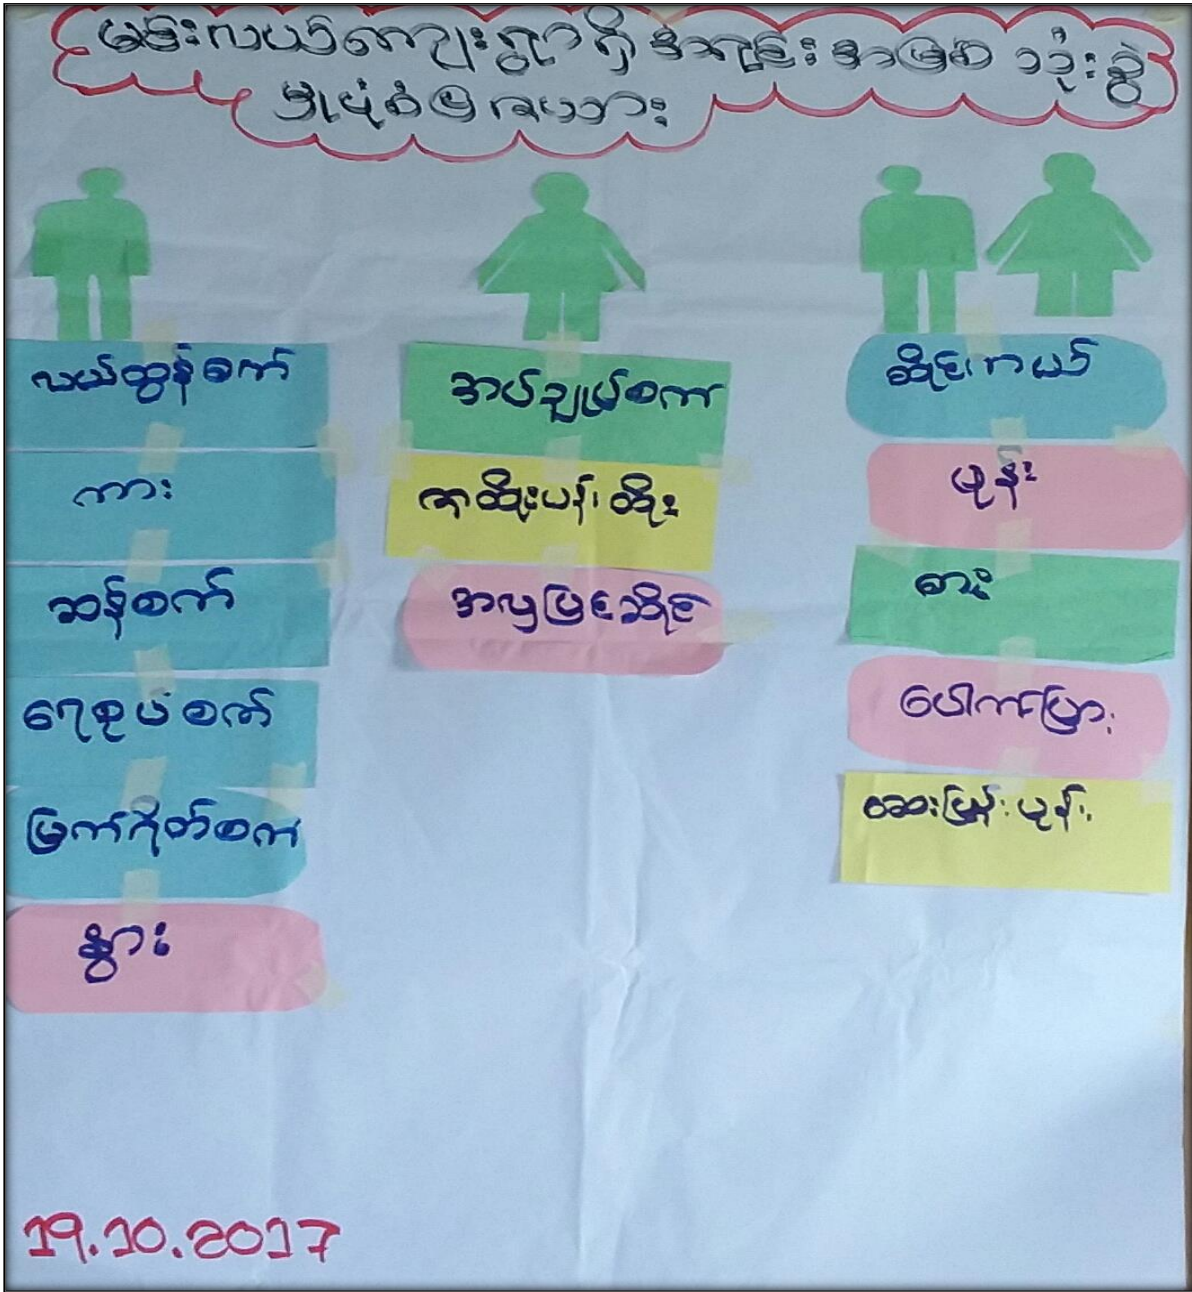 မန်းလယ်ကျေးရွာရှိ အရင်းအမြစ် သုံးစွဲ
မှုပုံစံမှ
လယ်ထွန်စက်
ကား
ဆန်စက်
ရေစုပ်စက်
မြက်ရိတ်စက်
နွား
အပ်ချုပ်စက်
ဇာထိုးပန်းထိုး
အလှပြင်ဆိုင်
ဆိုင်ကယ်
ဖုန်း
ဓား
ပေါက်ပြား
ဆေးဖြန်းပုန်း
19.10.2017